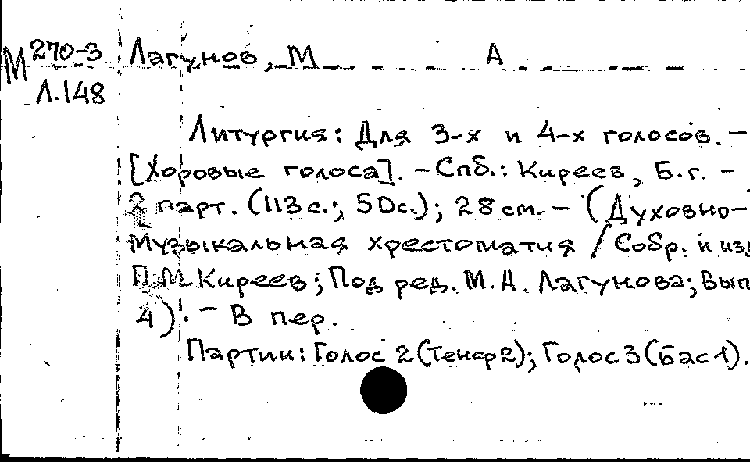 М 270-3 Лагунов, М А
Л.148
Литургия: Для 3-х и 4-х голосов. –
[Хоровые голоса]. – Спб.: Киреев, Б.г. –
2 парт. (113с.; 50с.); 28 см. – (Духовно-
музыкальная хрестоматия / Собр. и изд
П.М. Киреев; Под ред. М.А. Лагунова; Вып
4). – В пер.
Партии: Голос 2 (Тенор 2); Голос 3 (Бас 1).